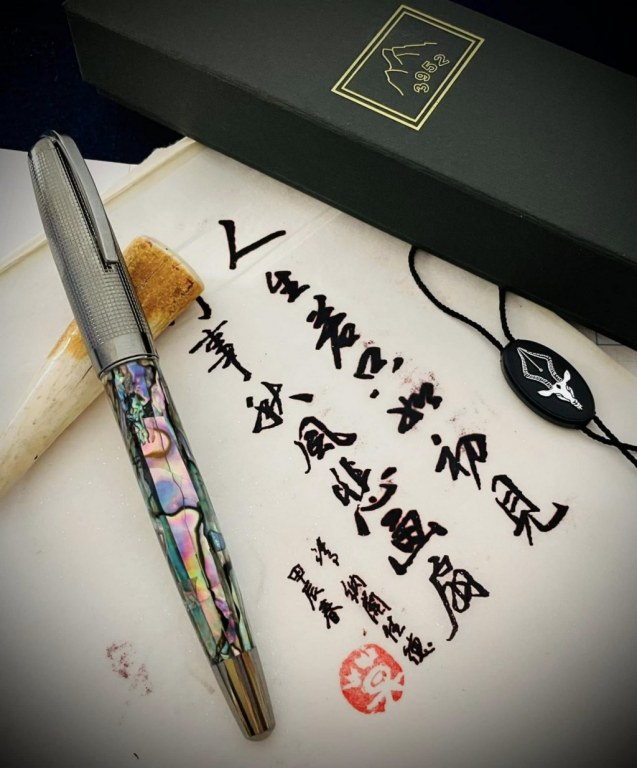 3952
人生若只如初見
事秋風悲画扇
清 納蘭性德
甲辰春